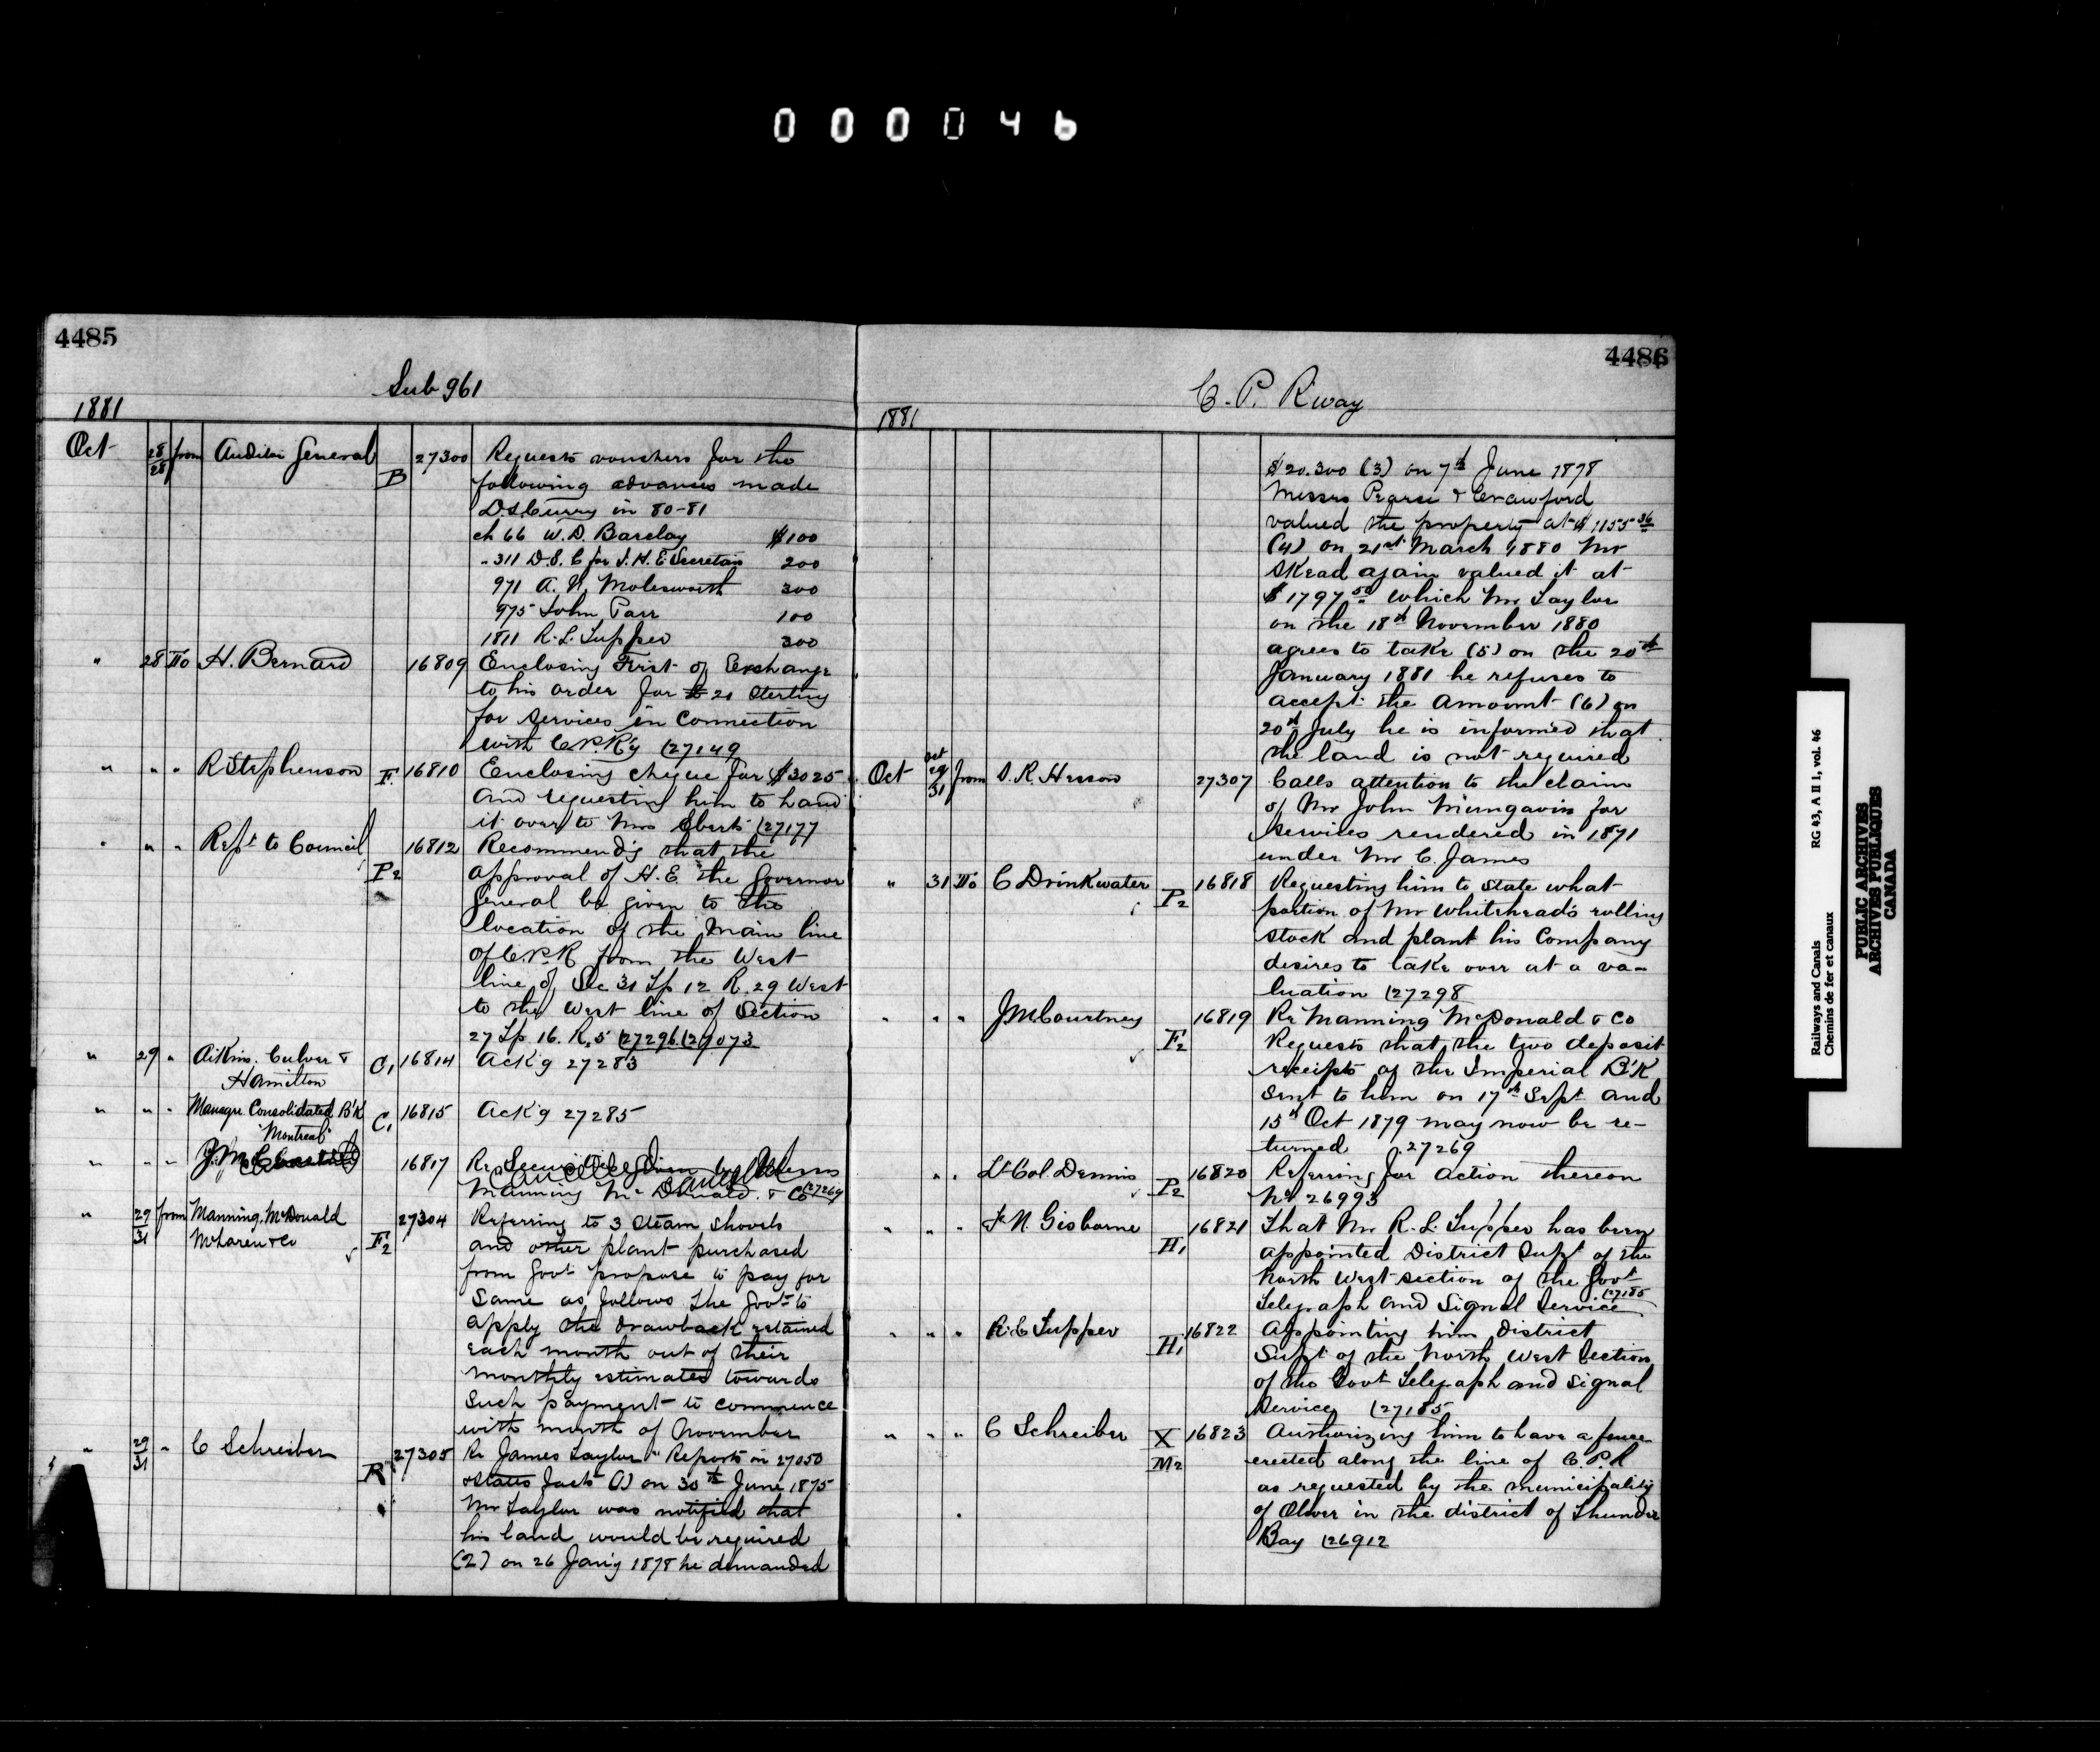 000046
4485
Sub 961
1881
Oct 28/28 from Auditor General B 27300 Requests vouchers for the
following advances made
D.S. Curry in 80-81
ch 66 W. D. Barclay $100
" 311 D.S.C for J. H. E. Secretan 200
971 A. N. Molesworth 300
975 John Parr 100
1811 R. L. Tupper 300
" 28 To H. Bernard 16809 Enclosing First of Exchange
to his order for £ 21 Sterling
for services in connection
with C.P.R'y (27149
" " " R Stephenson F. 16810 Enclosing cheque for $3025
and requesting him to hand
it over to Mrs Eberts (27177
" " " Rept to Council P2 16812 Recommend'g that the
approval of H.E. the Governor
General be given to the
location of the Main line
of C.P.R from the West
line of Sec 31 Tp 12 R. 29 West
to the West line of Section
27 Tp 16. R. 5 (27296 (27073
" 29 " Aikins. Culver &
Hamilton C1 16814 Ack'g 27283
" " " Manager Consolidated B'k
"Montreal" C1 16815 Ack'g 27285
" " " 16817 Re Securities given by
Manning McDonald & Co (27269
Cancelled
" 29/31 from Manning, McDonald
McLaren & Co F2 27304 Referring to 3 Steam Shovels
and other plant purchased
from Govt propose to pay for
same as follows the Govt to
apply the drawback retained
each month out of their
monthly estimates towards
such payment to commence
with month of November
" 29/31 " C Schreiber R 27305 Re James Taylor " Reports on 27050
& States facts (1) on 30th June 1875
Mr Taylor was notified that
his land would be required
(2) on 26 Jan'y 1878 he demanded
4486
C. P. R'way
1881
$20.300 (3) on 7th June 1878
Messrs Pearse & Crawford
valued the property at $1155 36
(4) on 21st March 1880 Mr
Skead again valued it at
$1797 50 which Mr Taylor
on the 18th November 1880
agrees to take (5) on the 20th
January 1881 he refuses to
accept the amount (6) on
20th July he is informed that
the land is not required
Oct Oct 29/31 from S. R. Hesson 27307 Calls attention to the claim
of Mr John Mungavin for
services rendered in 1871
under Mr C. James
" 31 To C Drinkwater P2 16818 Requesting him to state what
portion of Mr Whitehead's rolling
stock and plant his Company
desires to take over at a va-
luation (27298
" " " J M Courtney F2 16819 Re Manning McDonald & Co
Requests that the two deposit
receipts of the Imperial B'k
sent to him on 17th Sept and
15th Oct 1879 may now be re-
turned 27269
" " Lt Col. Dennis P2 16820 Referring for action thereon
No 26993
" " " F. N. Gisborne H1 16821 That Mr R. L. Tupper has been
appointed District Supt of the
North West section of the Govt
Telegraph and Signal Service (27185
" " " R. C Tupper H1 16822 Appointing him District
Supt of the North West Section
of the Govt Telegraph and Signal
Service (27185
" " " C Schreiber X M2 16823 Authorizing him to have a fence
erected along the line of C.P.R
as requested by the municipality
of Oliver in the district of Thunder
Bay (26912
Railways and Canals RG 43, A II 1, vol. 46
Chemins de fer et canaux
PUBLIC ARCHIVES
ARCHIVES PUBLIQUES
CANADA